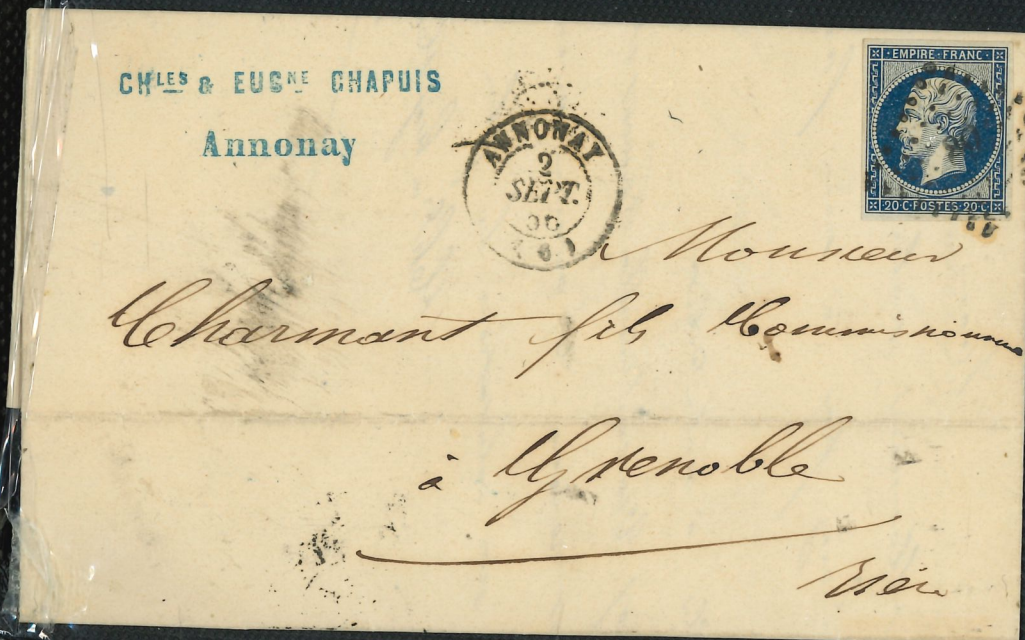 CHLES & EUGNE CHAPUIS
Annonay
ANNONAY
2
SEPT.
(6)
EMPIRE·FRANC·
20·C·POSTES·20·C·
Monsieur
Charmant fils Commissionnaire
à Grenoble
Isère